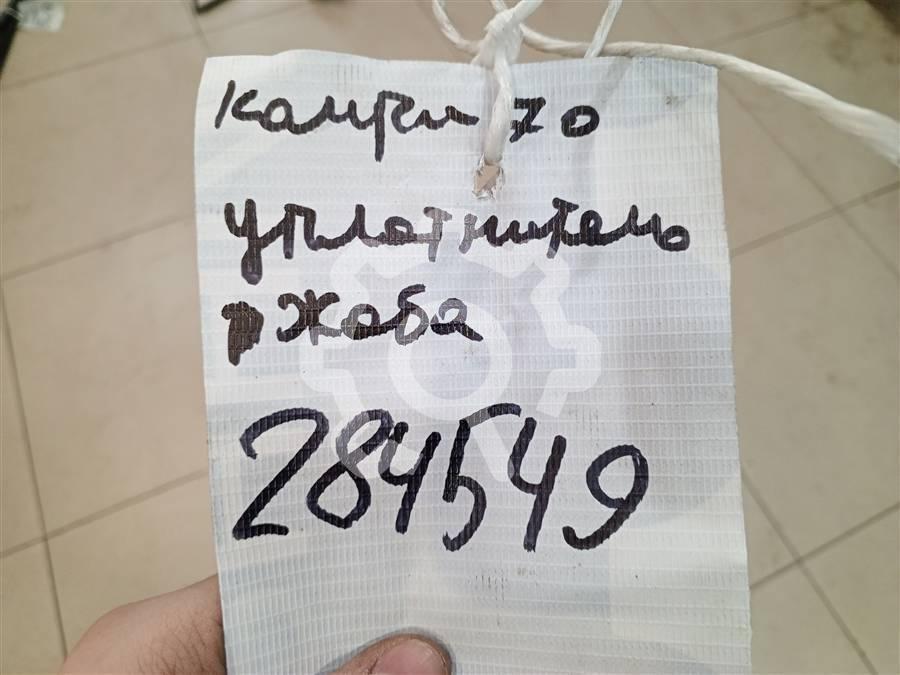 Камри 70
уплотнитель
жаба
284549